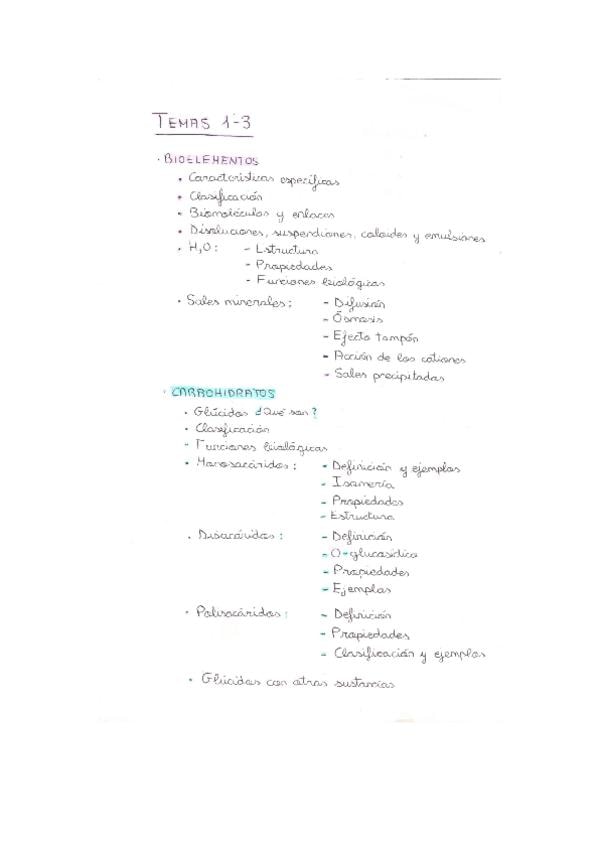 TEMAS 1-3
· BIOELEMENTOS
• Características específicas
• Clasificación
• Biomoléculas y enlaces
• Disoluciones, suspensiones, coloides y emulsiones
• H₂O: - Estructura
- Propiedades
- Funciones biológicas
• Sales minerales: - Difusión
- Ósmosis
- Efecto tampón
- Acción de los cationes
- Sales precipitadas
· CARBOHIDRATOS
• Glúcidos ¿Qué son?
• Clasificación
- Funciones biológicas
• Monosacáridos: - Definición y ejemplos
- Isomería
- Propiedades
- Estructura
• Disacáridos: - Definición
- O-glucosídico
- Propiedades
- Ejemplos
• Polisacáridos: - Definición
- Propiedades
- Clasificación y ejemplos
• Glúcidos con otras sustancias